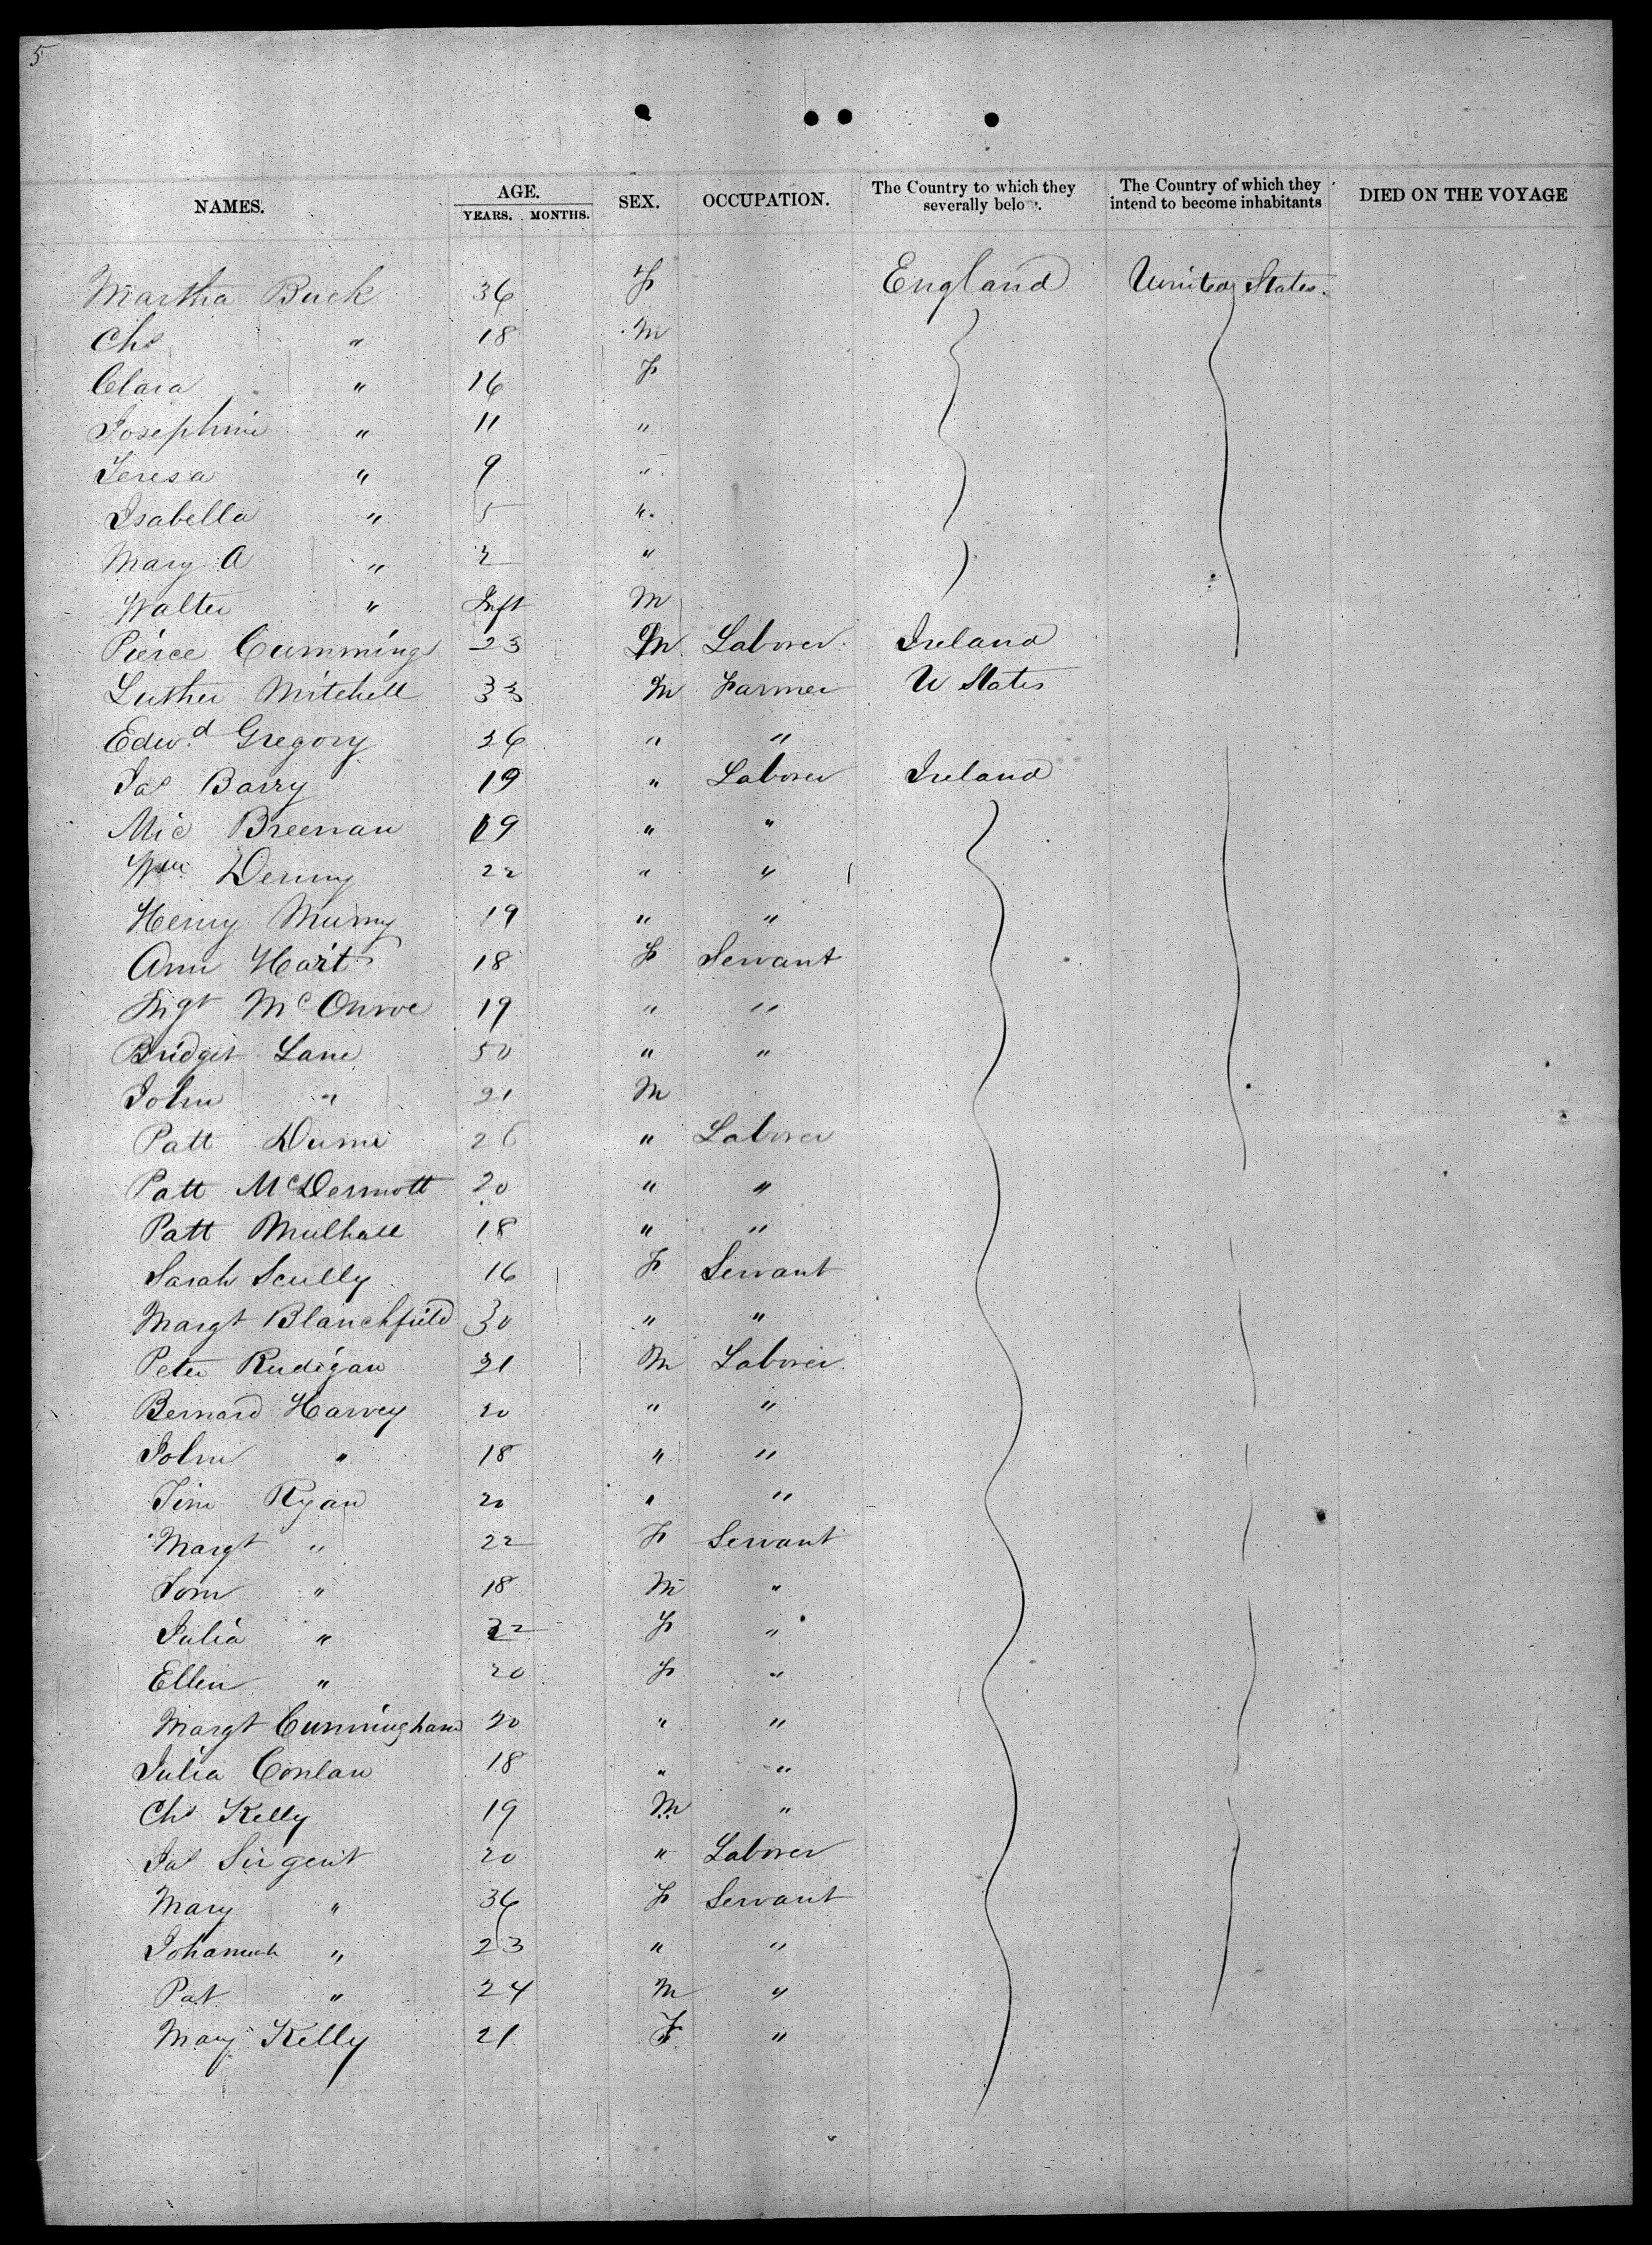 5
NAMES. AGE. YEARS. MONTHS. SEX. OCCUPATION. The Country to which they severally belo . The Country of which they intend to become inhabitants DIED ON THE VOYAGE
Martha Buck 36 F England United States.
Chs " 18 M
Clara " 16 F
Josephine " 11 "
Teresa " 9 "
Isabella " 5 "
Mary A " 2 "
Walter " Inft M
Pierce Cummings 23 M Laborer Ireland
Luther Mitchell 33 M Farmer U States
Edwd Gregory 26 " "
Jas Barry 19 " Laborer Ireland
Mic Breenan 19 " "
Wm Denny 22 " "
Henry Murry 19 " "
Ann Hart 18 F Servant
Mgt Mc 19 " "
Bridget Lane 50 " "
John " 21 M
Patt Dunne 26 " Laborer
Patt McDermott 20 " "
Patt Mulhall 18 " "
Sarah Scully 16 F Servant
Margt Blanchfield 30 " "
Peter Rudigan 21 M Laborer
Bernard Harvey 20 " "
John " 18 " "
Tim Ryan 20 " "
Margt " 22 F Servant
Tom " 18 M "
Julia " 22 F "
Ellen " 20 F "
Margt Cunningham 20 " "
Julia Conlan 18 " "
Chs Kelly 19 M "
Jas Sirgent 20 " Laborer
Mary " 36 F Servant
Johannah " 23 " "
Pat " 24 M "
Mary Kelly 21 F "